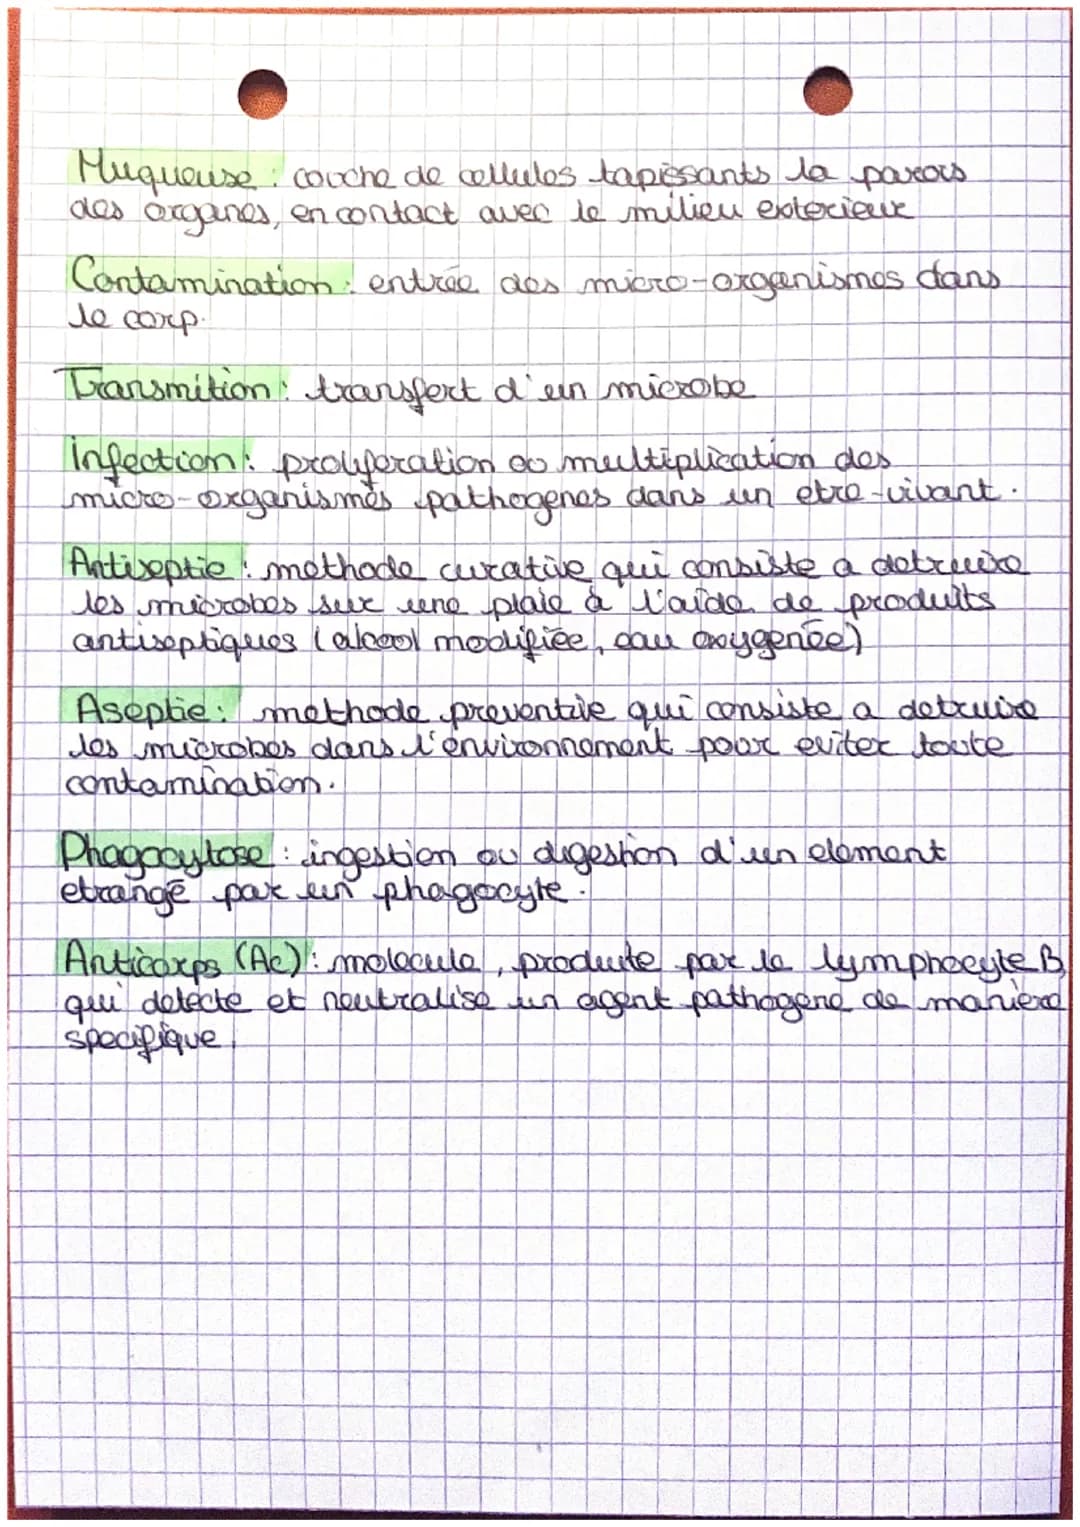 Muqueuse : couche de cellules tapissants la parois
des organes, en contact avec le milieu exterieur
Contamination : entrée des micro-organismes dans
le corp.
Transmition : transfert d'un microbe
Infection : proliferation ou multiplication des
micro-organismes pathogenes dans un etre-vivant.
Antiseptie : methode curative qui consiste a detruire
les microbes sur une plaie à l'aide de produits
antiseptiques (alcool modifiée, eau oxygenée)
Aseptie : methode preventive qui consiste a detruire
les microbes dans l'environnement pour eviter toute
contamination.
Phagocytose : ingestion ou digestion d'un element
etrangé par un phagocyte.
Anticorps (Ac) : molecule, produite par le lymphocyte B
qui detecte et neutralise un agent pathogene de maniere
specifique.